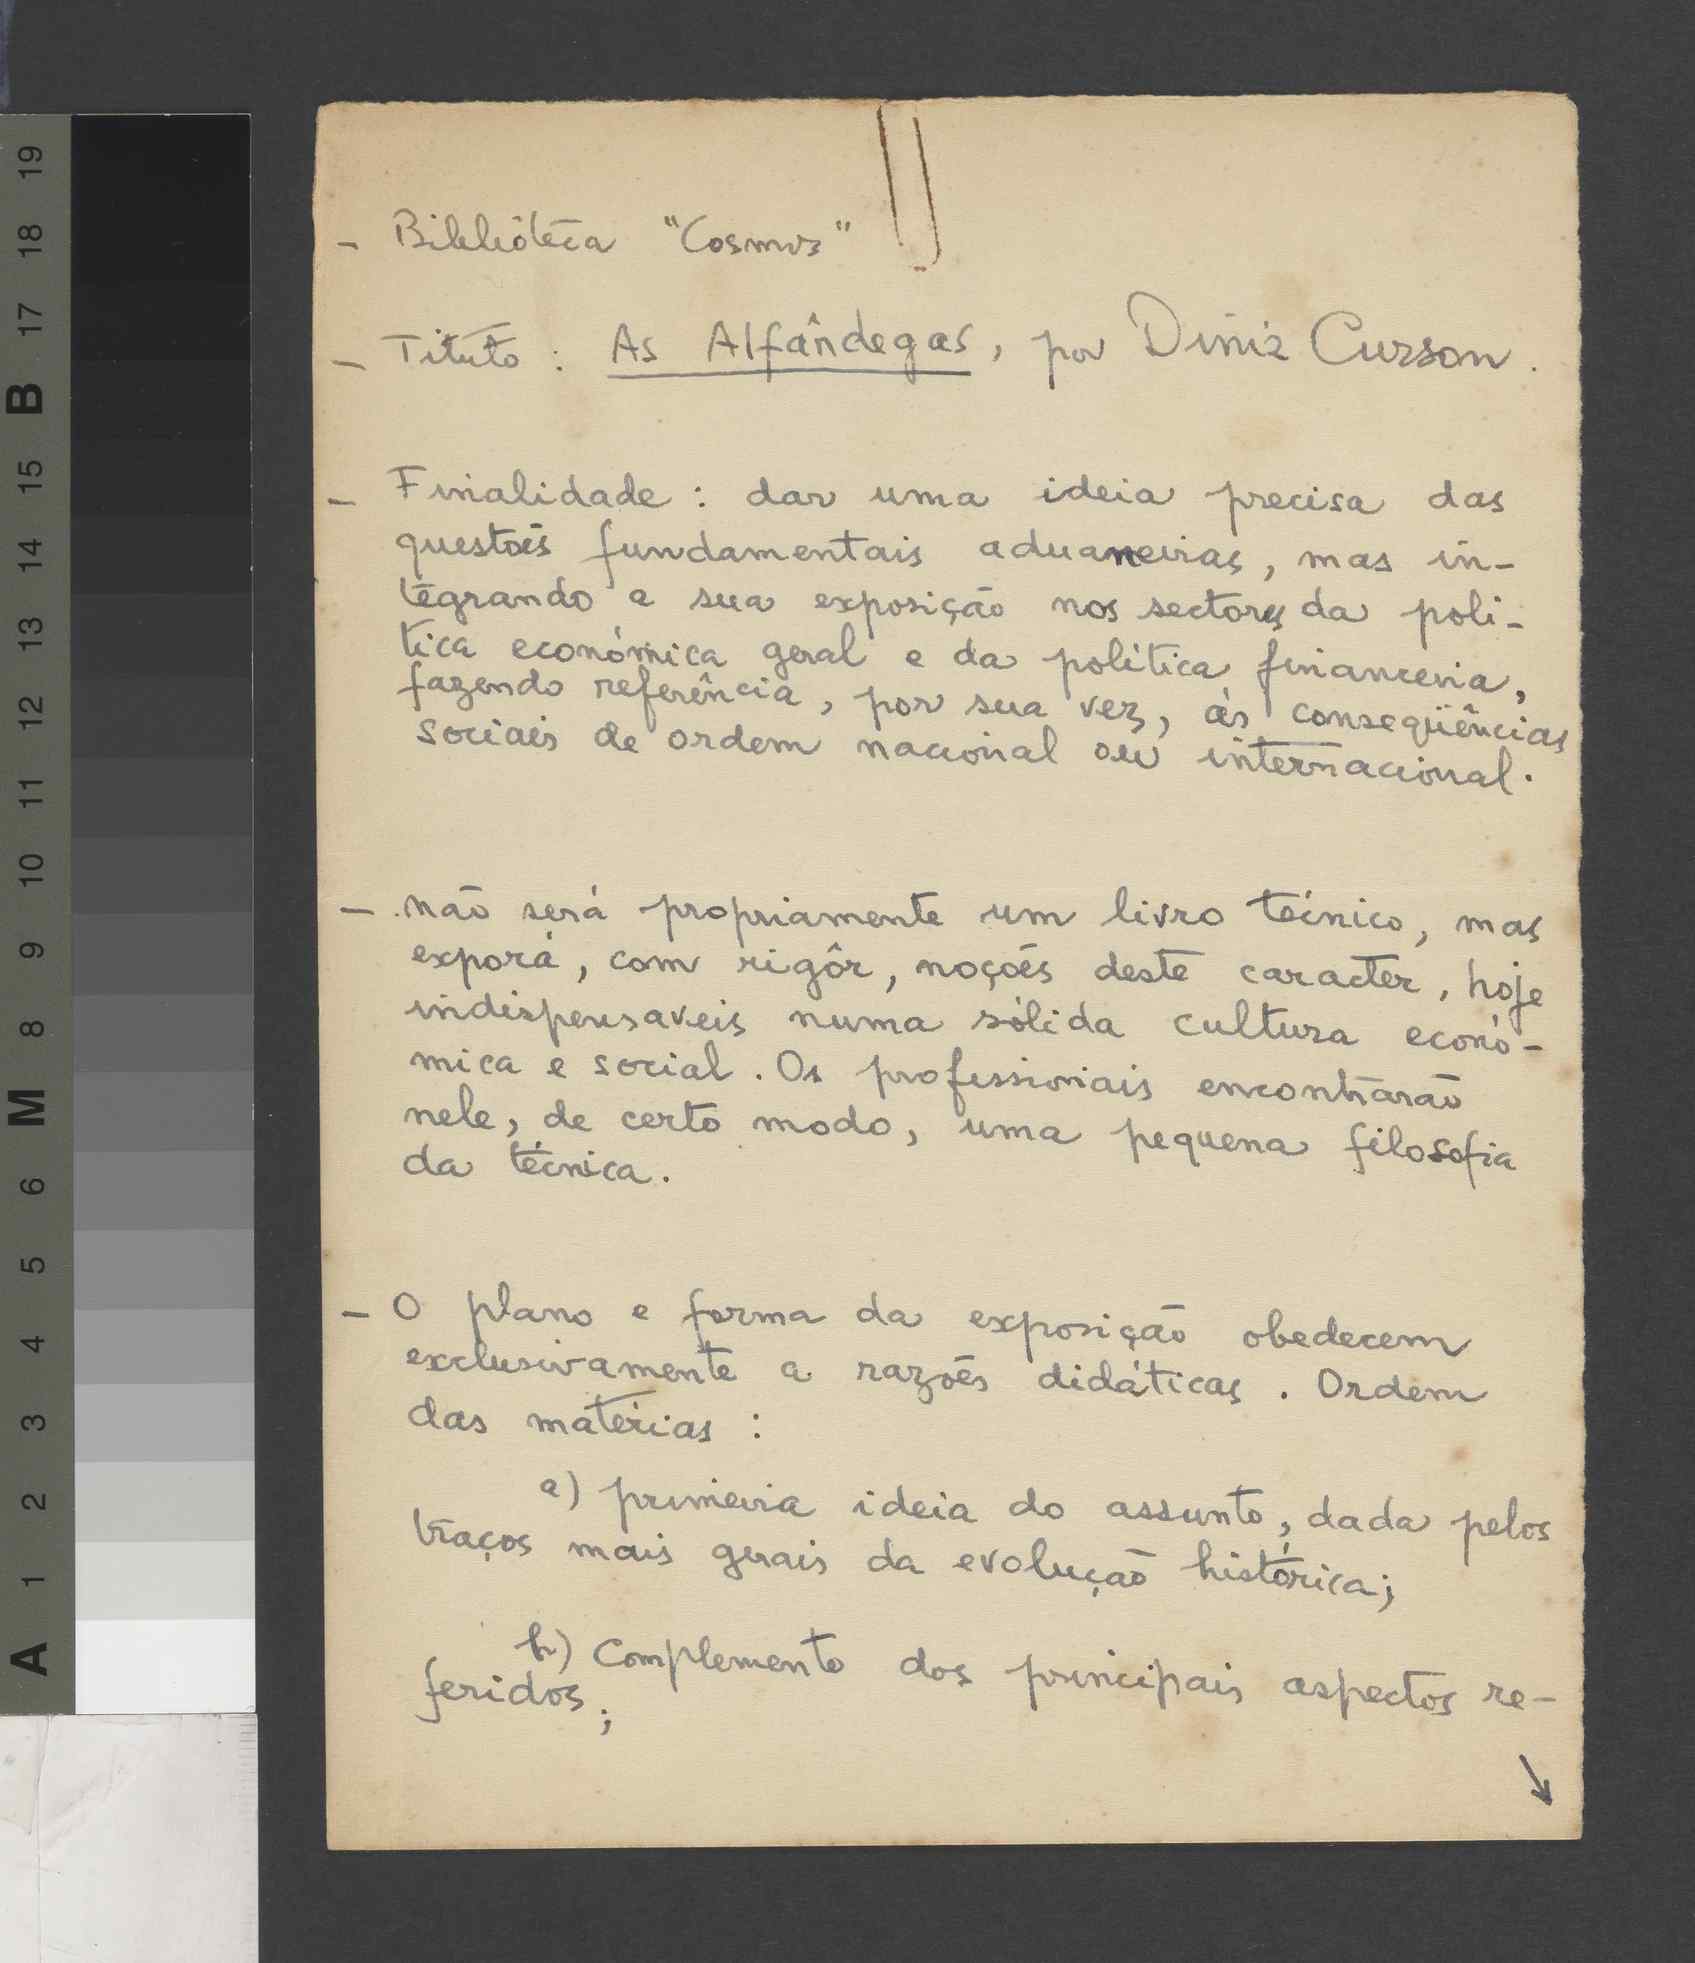 - Biblióteca "Cosmos"
- Titulo : As Alfândegas, por Diniz Curson.
- Finalidade : dar uma ideia precisa das
questões fundamentais aduaneiras, mas in-
tegrando a sua exposição nos sectores da poli-
tica económica geral e da política financeira,
fazendo referência, por sua vez, ás conseqüências
sociais de ordem nacional ou internacional.
- não será propriamente um livro técnico, mas
exporá, com rigôr, noções deste caracter, hoje
indispensaveis numa sólida cultura econó-
mica e social. Os profissionais encontrarão
nele, de certo modo, uma pequena filosofia
da técnica.
- O plano e forma da exposição obedecem
exclusivamente a razões didáticas. Ordem
das matérias :
a) primeira ideia do assunto, dada pelos
traços mais gerais da evolução histórica;
b) Complemento dos principais aspectos re-
feridos;
19
18
17
B
15
14
13
12
11
10
9
8
M
6
5
4
3
2
1
A